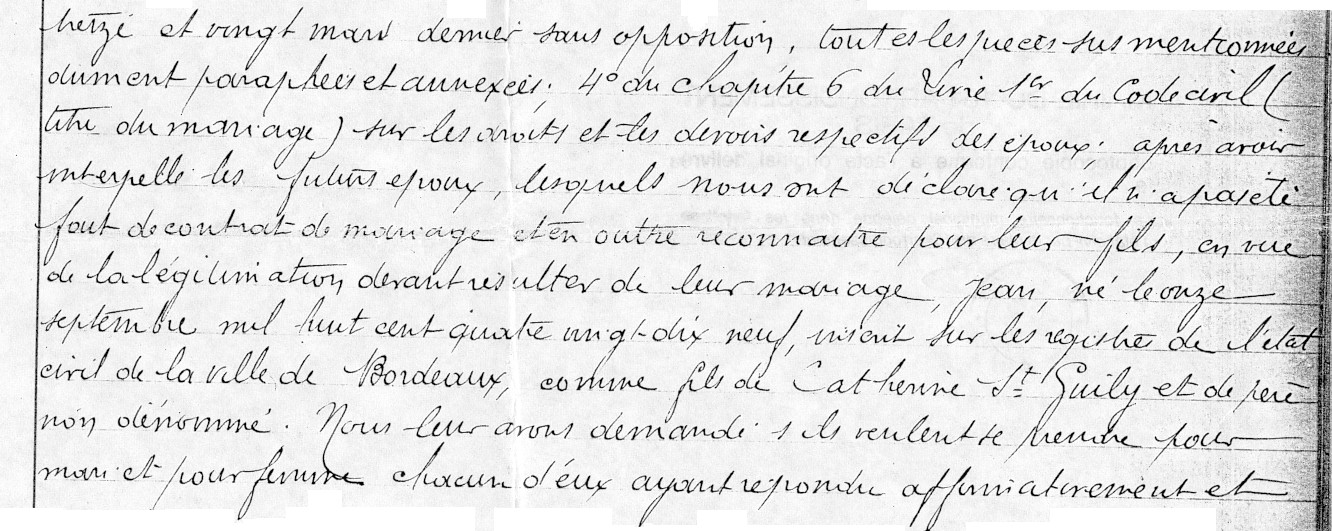 treize et vingt mars dernier sans opposition, toutes les pieces sus mentionnées
dument paraphées et annexées; 4° du chapitre 6 du Livre 1er du Code civil (
titre du mariage) sur les droits et les devoirs respectifs des epoux. après avoir
interpellé les futurs epoux, lesquels nous ont déclaré qu'il n'a pas été
fait de contrat de mariage et en outre reconnaitre pour leur fils, en vue
de la légitimation devant resulter de leur mariage, Jean, né le onze
septembre mil huit cent quatre vingt-dix neuf, inscrit sur les registres de l'état
civil de la ville de Bordeaux, comme fils de Catherine St Guily et de père
non dénommé. Nous leur avons demandé s'ils veulent se prendre pour
mari et pour femme chacun d'eux ayant repondu affirmativement et